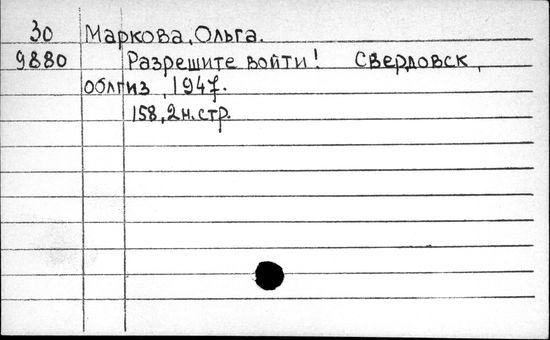 30 Маркова, Ольга.
9880 Разрешите войти! Свердовск,
облгиз, 1947.
158, 2 н. стр.